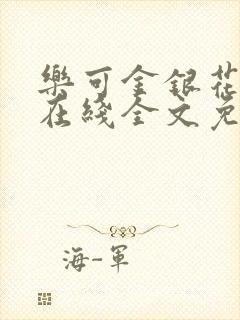 樂可金銀花
在綫全文免
海-軍